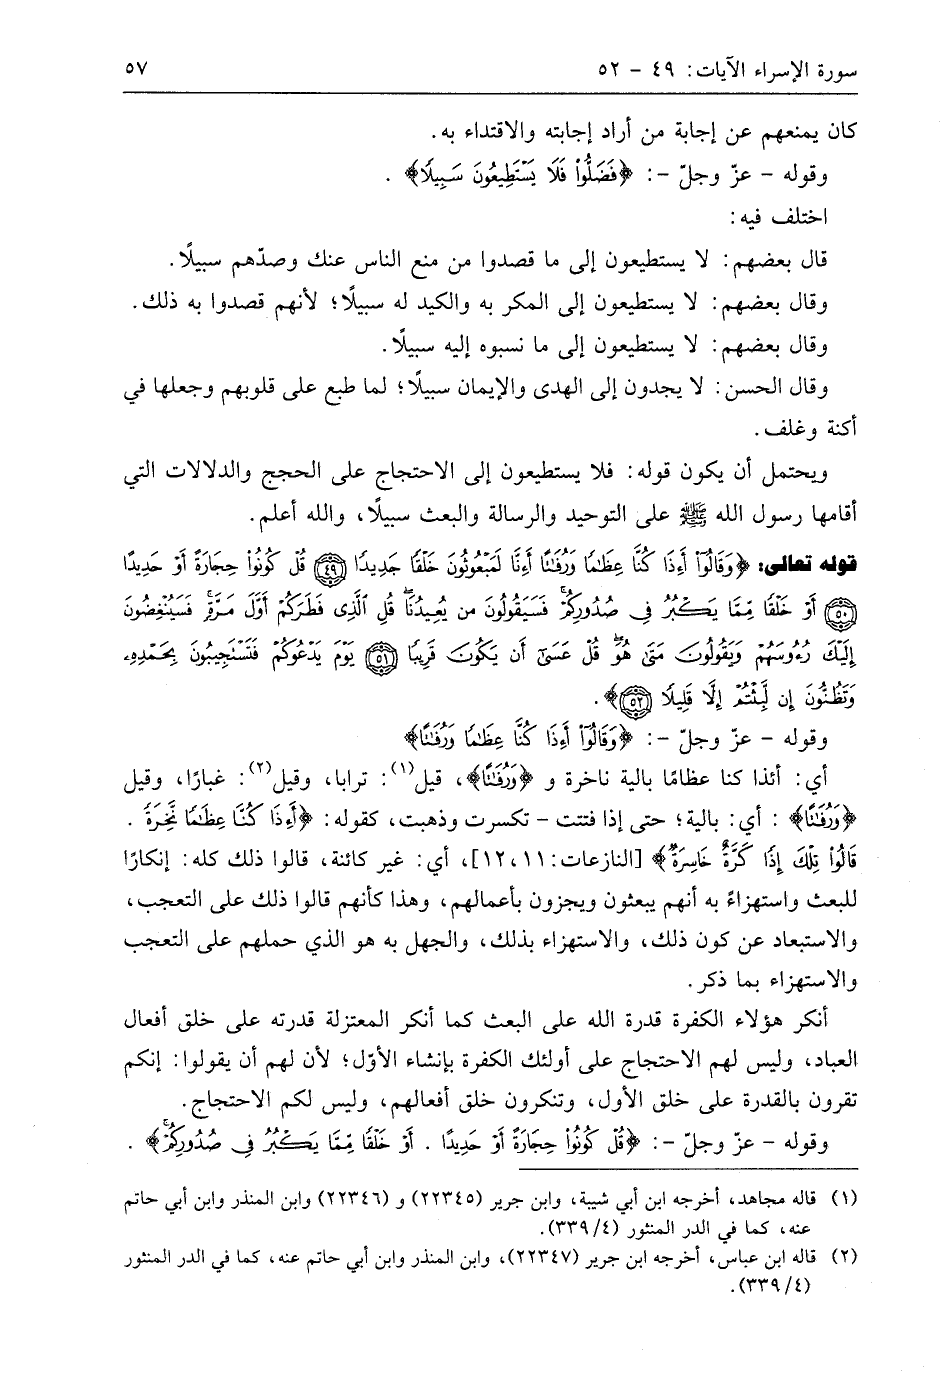 سورة الإسراء الآيات: ٤٩ - ٥٢ ٥٧
كان يمنعهم عن إجابة من أراد إجابته والاقتداء به.
وقوله - عزّ وجلّ -: ﴿فَضَلُّوا۟ فَلَا يَسْتَطِيعُونَ سَبِيلًا﴾ .
اختلف فيه:
قال بعضهم: لا يستطيعون إلى ما قصدوا من منع الناس عنك وصدّهم سبيلًا.
وقال بعضهم: لا يستطيعون إلى المكر به والكيد له سبيلًا؛ لأنهم قصدوا به ذلك.
وقال بعضهم: لا يستطيعون إلى ما نسبوه إليه سبيلًا.
وقال الحسن: لا يجدون إلى الهدى والإيمان سبيلًا؛ لما طبع على قلوبهم وجعلها في
أكنة وغلف.
ويحتمل أن يكون قوله: فلا يستطيعون إلى الاحتجاج على الحجج والدلالات التي
أقامها رسول الله ﷺ على التوحيد والرسالة والبعث سبيلًا، والله أعلم.
قوله تعالى: ﴿وَقَالُوٓا۟ أَءِذَا كُنَّا عِظَـٰمًا وَرُفَـٰتًا أَءِنَّا لَمَبْعُوثُونَ خَلْقًا جَدِيدًا ﴿٤٩﴾ قُلْ كُونُوا۟ حِجَارَةً أَوْ حَدِيدًا
﴿٥٠﴾ أَوْ خَلْقًا مِّمَّا يَكْبُرُ فِى صُدُورِكُمْ ۚ فَسَيَقُولُونَ مَن يُعِيدُنَا ۖ قُلِ ٱلَّذِى فَطَرَكُمْ أَوَّلَ مَرَّةٍ ۚ فَسَيُنْغِضُونَ
إِلَيْكَ رُءُوسَهُمْ وَيَقُولُونَ مَتَىٰ هُوَ ۖ قُلْ عَسَىٰٓ أَن يَكُونَ قَرِيبًا ﴿٥١﴾ يَوْمَ يَدْعُوكُمْ فَتَسْتَجِيبُونَ بِحَمْدِهِۦ
وَتَظُنُّونَ إِن لَّبِثْتُمْ إِلَّا قَلِيلًا ﴿٥٢﴾﴾.
وقوله - عزّ وجلّ -: ﴿وَقَالُوٓا۟ أَءِذَا كُنَّا عِظَـٰمًا وَرُفَـٰتًا﴾
أي: أئذا كنا عظامًا بالية ناخرة و ﴿وَرُفَـٰتًا﴾، قيل(١): ترابا، وقيل(٢): غبارًا، وقيل
﴿وَرُفَـٰتًا﴾ : أي: بالية؛ حتى إذا فتتت - تكسرت وذهبت، كقوله: ﴿أَءِذَا كُنَّا عِظَـٰمًا نَّخِرَةً .
قَالُوا۟ تِلْكَ إِذًا كَرَّةٌ خَاسِرَةٌ﴾ [النازعات: ١١، ١٢]، أي: غير كائنة، قالوا ذلك كله: إنكارًا
للبعث واستهزاءً به أنهم يبعثون ويجزون بأعمالهم، وهذا كأنهم قالوا ذلك على التعجب،
والاستبعاد عن كون ذلك، والاستهزاء بذلك، والجهل به هو الذي حملهم على التعجب
والاستهزاء بما ذكر.
أنكر هؤلاء الكفرة قدرة الله على البعث كما أنكر المعتزلة قدرته على خلق أفعال
العباد، وليس لهم الاحتجاج على أولئك الكفرة بإنشاء الأوّل؛ لأن لهم أن يقولوا: إنكم
تقرون بالقدرة على خلق الأول، وتنكرون خلق أفعالهم، وليس لكم الاحتجاج.
وقوله - عزّ وجلّ -: ﴿قُلْ كُونُوا۟ حِجَارَةً أَوْ حَدِيدًا . أَوْ خَلْقًا مِّمَّا يَكْبُرُ فِى صُدُورِكُمْ ۚ﴾ .
(١) قاله مجاهد، أخرجه ابن أبي شيبة، وابن جرير (٢٢٣٤٥) و (٢٢٣٤٦) وابن المنذر وابن أبي حاتم
عنه، كما في الدر المنثور (٤/ ٣٣٩).
(٢) قاله ابن عباس، أخرجه ابن جرير (٢٢٣٤٧)، وابن المنذر وابن أبي حاتم عنه، كما في الدر المنثور
(٤/ ٣٣٩).